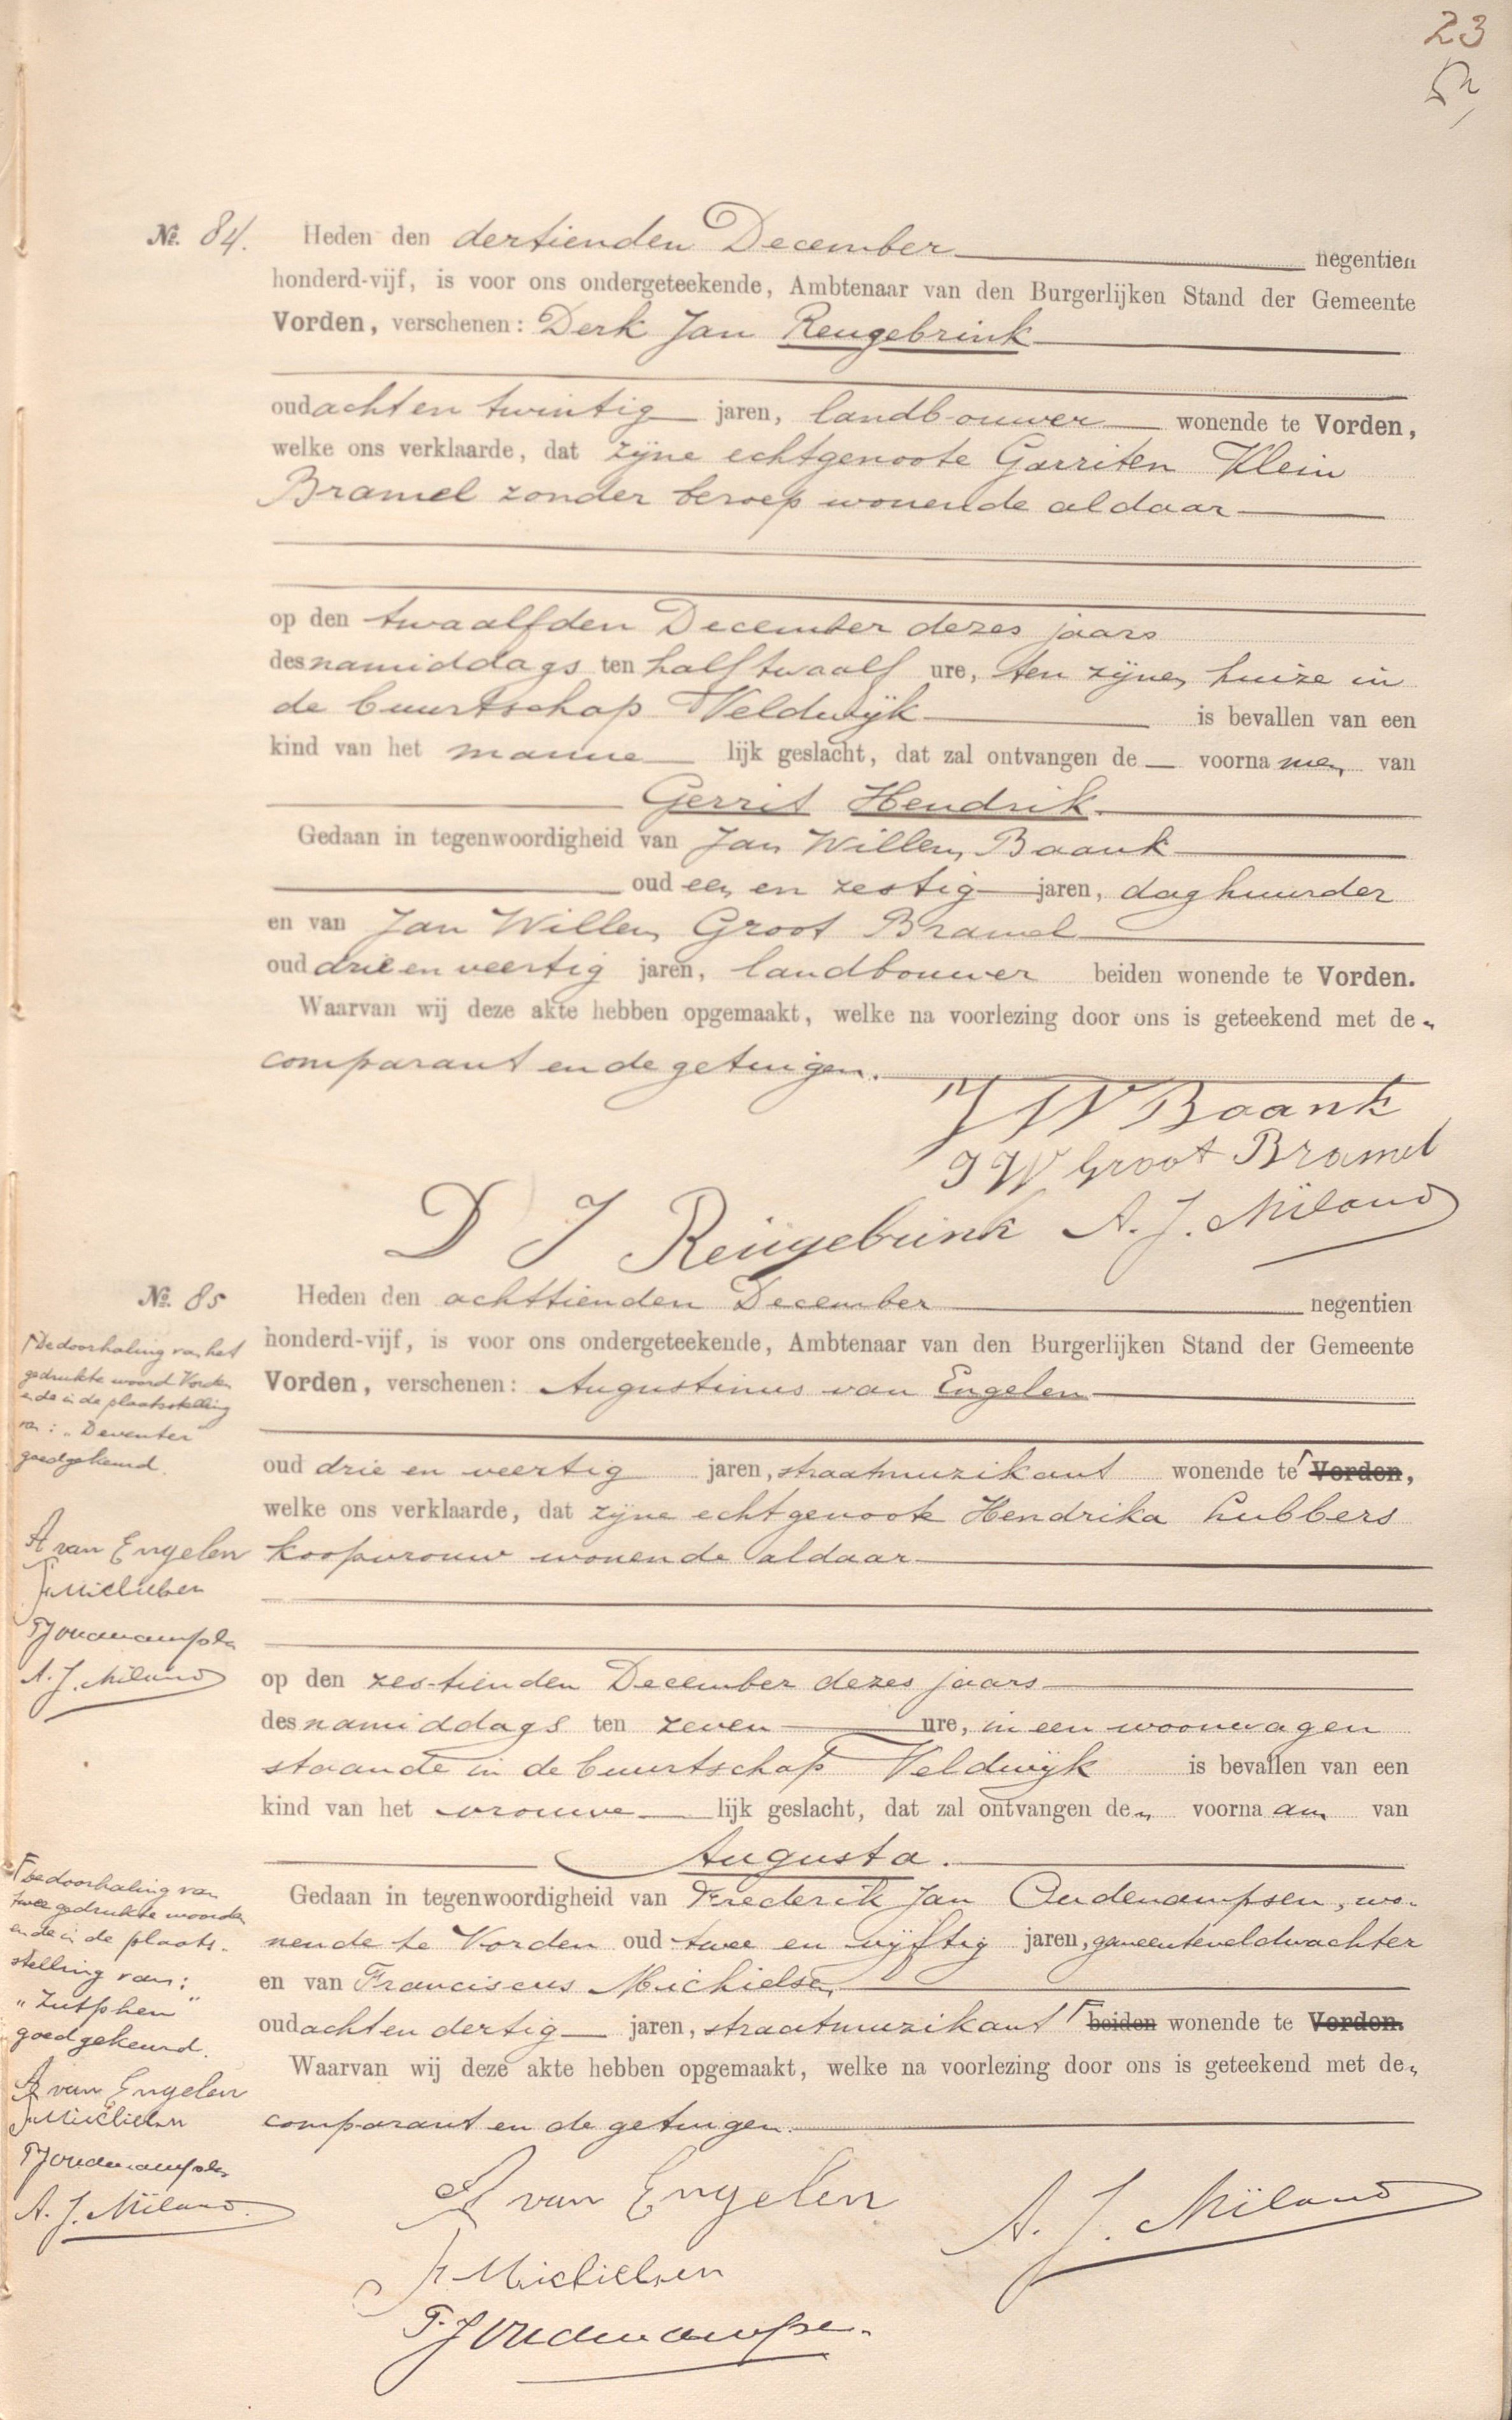 23
№. 84. Heden den dertienden December negentien
honderd-vijf, is voor ons ondergeteekende, Ambtenaar van den Burgerlijken Stand der Gemeente
Vorden, verschenen: Derk Jan Reugebrink
oud acht en twintig jaren, landbouwer wonende te Vorden,
welke ons verklaarde, dat zijne echtgenoote Garriten Klein
Bramel zonder beroep wonende aldaar
op den twaalfden December dezes jaars
des namiddags ten half twaalf ure, ten zijnen huize in
de buurtschap Veldwijk is bevallen van een
kind van het manne lijk geslacht, dat zal ontvangen de voorna men van
Gerrit Hendrik.
Gedaan in tegenwoordigheid van Jan Willem Baank
oud een en zestig jaren, daghuurder
en van Jan Willem Groot Bramel
oud drie en veertig jaren, landbouwer beiden wonende te Vorden.
Waarvan wij deze akte hebben opgemaakt, welke na voorlezing door ons is geteekend met den
comparant en de getuigen.
J W Baank
J W Groot Bramel
D J Reugebrink A. J. Miland
№. 85 Heden den achttienden December negentien
honderd-vijf, is voor ons ondergeteekende, Ambtenaar van den Burgerlijken Stand der Gemeente
Vorden, verschenen: Augustinus van Engelen
oud drie en veertig jaren, straatmuzikant wonende te Vorden,
welke ons verklaarde, dat zijne echtgenoote Hendrika Lubbers
koopvrouw wonende aldaar
op den zestienden December dezes jaars
des namiddags ten zeven ure, in een woonwagen
staande in de buurtschap Veldwijk is bevallen van een
kind van het vrouwe lijk geslacht, dat zal ontvangen den voorna am van
Augusta.
Gedaan in tegenwoordigheid van Frederik Jan Oudenampsen, wo-
nende te Vorden oud twee en vijftig jaren, gemeenteveldwachter
en van Franciscus Michielsen
oud acht en dertig jaren, straatmuzikant beiden wonende te Vorden.
Waarvan wij deze akte hebben opgemaakt, welke na voorlezing door ons is geteekend met den
comparant en de getuigen.
A van Engelen A. J. Miland
F Michielsen
F. J Oudenampsen
De doorhaling van het
gedrukte woord Vorden
en de in de plaatsstelling
van: "Deventer"
goedgekeurd.
A van Engelen
F Michielsen
F J Oudenampsen
A. J. Miland
De doorhaling van
twee gedrukte woorden
en de in de plaats-
stelling van:
"Zutphen"
goedgekeurd.
A van Engelen
F Michielsen
F J Oudenampsen
A. J. Miland.